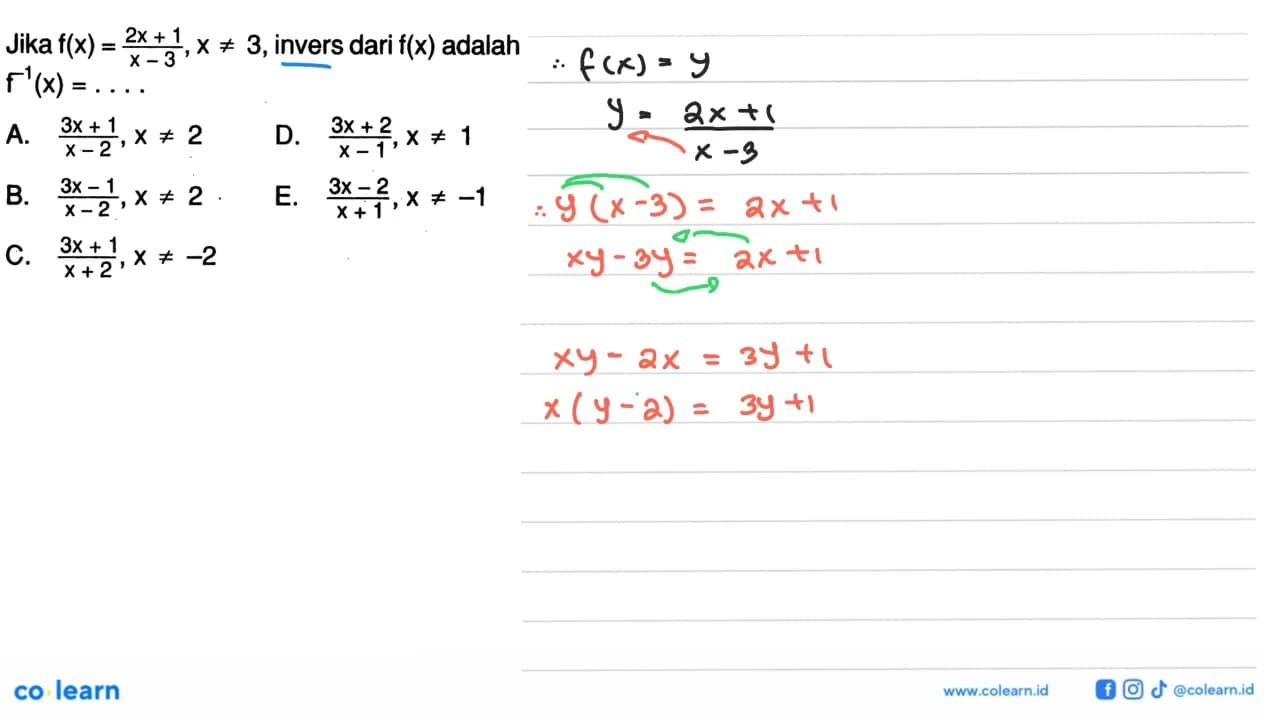 Jika f(x) = \frac{2x + 1}{x – 3}, x ≠ 3, invers dari f(x) adalah
f⁻¹(x) = . . . .
A. \frac{3x + 1}{x – 2}, x ≠ 2
B. \frac{3x – 1}{x – 2}, x ≠ 2
C. \frac{3x + 1}{x + 2}, x ≠ –2
D. \frac{3x + 2}{x – 1}, x ≠ 1
E. \frac{3x – 2}{x + 1}, x ≠ –1
∴ f(x) = y
y = \frac{2x + 1}{x – 3}
∴ y (x – 3) = 2x + 1
xy – 3y = 2x + 1
xy – 2x = 3y + 1
x (y – 2) = 3y + 1
co learn
www.colearn.id
@colearn.id